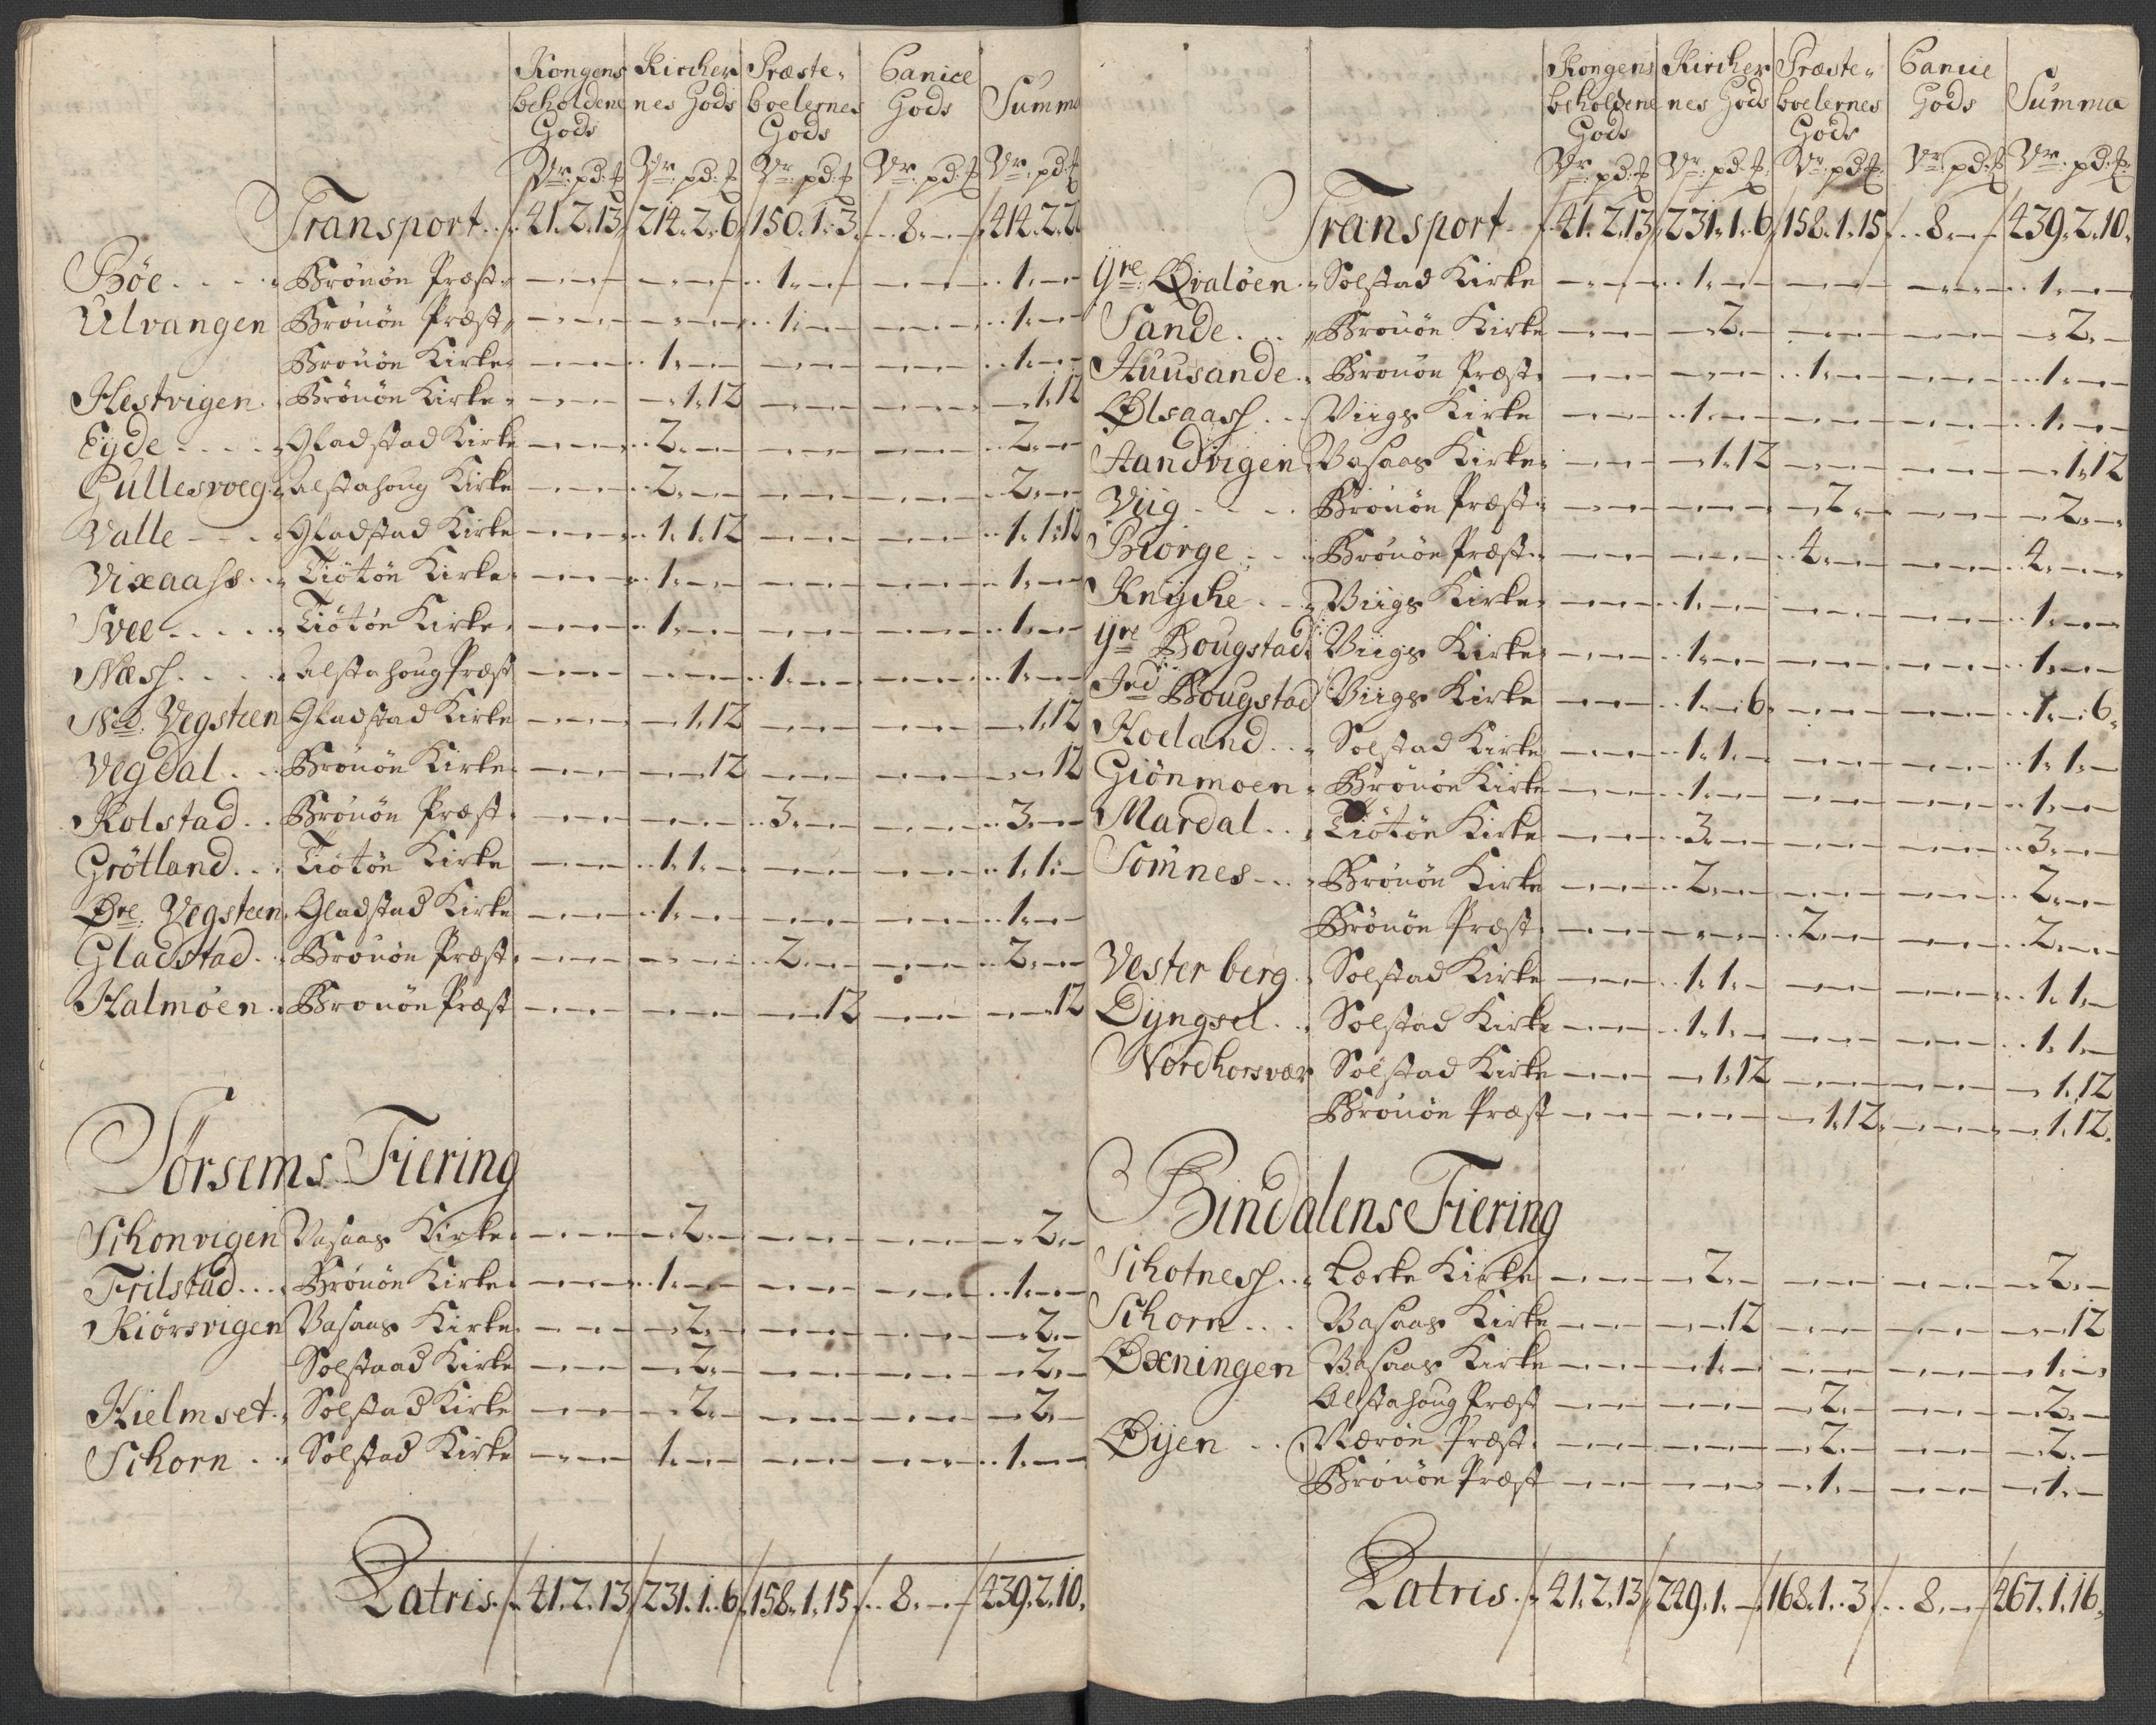 Kongens beholdene Gods | Kircher nes Gods | Præste boelernes Gods | Canice Gods | Summa
Vr: pd: | Vr: pd: | Vr: pd: | Vr: pd: | Vr: pd:
Transport 41. 2. 13 | 214. 2. 6 | 150. 1. 3 | 8. — — | 414. 2. 22
Böe | Brönöe Præst | — | — | 1. — — | — | 1. — —
Ulvangen | Brönöe Præst | — | — | 1. — — | — | 1. — —
Brönöe Kirke | — | 1. — — | — | — | 1. — —
Hestvigen | Brönöe Kirke | — | — 1. 12 | — | — | — 1. 12
Eyde | Gladstad Kirke | — | 2. — — | — | — | 2. — —
Gullesvoeg | Alstahoug Kirke | — | 2. — — | — | — | 2. — —
Valle | Gladstad Kirke | — | 1. 1. 12 | — | — | 1. 1. 12
Vixaass | Tiötöe Kirke | — | 1. — — | — | — | 1. — —
Svee | Tiötöe Kirke | — | 1. — — | — | — | 1. — —
Næss | Alstahoug Præst | — | — | 1. — — | — | 1. — —
Ned: Vegsteen | Gladstad Kirke | — | — 1. 12 | — | — | — 1. 12
Vegdal | Brönöe Kirke | — | — — 12 | — | — | — — 12
Kolstad | Brönöe Præst | — | — | 3. — — | — | 3. — —
Grötland | Tiötöe Kirke | — | 1. 1. — | — | — | 1. 1. —
Øre: Vegsteen | Gladstad Kirke | — | 1. — — | — | — | 1. — —
Gladstad | Brönöe Præst | — | — | 2. — — | — | 2. — —
Halmøen | Brönöe Præst | — | — | — — 12 | — | — — 12
Sørsems Fiering
Schonvigen | Vasaas Kirke | — | — 2. — | — | — | — 2. —
Frilstad | Brönöe Kirke | — | 1. — — | — | — | 1. — —
Kiörsvigen | Vasaas Kirke | — | — 2. — | — | — | — 2. —
Solstaad Kirke | — | — 2. — | — | — | — 2. —
Kielmset | Solstad Kirke | — | — 2. — | — | — | — 2. —
Schorn | Solstad Kirke | — | 1. — — | — | — | 1. — —
Latris 41. 2. 13 | 231. 1. 6 | 158. 1. 15 | 8. — — | 439. 2. 10.
Kongens beholdene Gods | Kircher nes Gods | Præste boelernes Gods | Canice Gods | Summa
Vr: pd: | Vr: pd: | Vr: pd: | Vr: pd: | Vr: pd:
Transport 41. 2. 13 | 231. 1. 6 | 158. 1. 15 | 8. — — | 439. 2. 10.
Yre: Qvaløen | Solstad Kirke | — | 1. — — | — | — | 1. — —
Sande | Brönöe Kirke | — | — 2. — | — | — | — 2. —
Huusande | Brönöe Præst | — | — | 1. — — | — | 1. — —
Ølsaass | Viigs Kirke | — | 1. — — | — | — | 1. — —
Aandvigen | Vasaas Kirke | — | — 1. 12 | — | — | — 1. 12
Viig | Brönöe Præst | — | — | — 2. — | — | — 2. —
Biorge | Brönöe Præst | — | — | 4. — — | — | 4. — —
Knyche | Viigs Kirke | — | 1. — — | — | — | 1. — —
Yre Bougstad | Viigs Kirke | — | 1. — — | — | — | 1. — —
Ind Bougstad | Viigs Kirke | — | 1. — 6. | — | — | 1. — 6.
Hoeland | Solstad Kirke | — | 1. 1. — | — | — | 1. 1. —
Giönmoen | Brönöe Kirke | — | 1. — — | — | — | 1. — —
Mardal | Tiötöe Kirke | — | 3. — — | — | — | 3. — —
Somnes | Brönöe Kirke | — | 2. — — | — | — | 2. — —
Brönöe Præst | — | — | 2. — — | — | 2. — —
Vesterberg | Solstad Kirke | — | 1. 1. — | — | — | 1. 1. —
Dyngsel | Solstad Kirke | — | 1. 1. — | — | — | 1. 1. —
Nordhorsvær | Solstad Kirke | — | — 1. 12 | — | — | — 1. 12
Brönöe Præst | — | — | — 1. 12. | — | — 1. 12.
Bindalens Fiering
Schotness | Lecke Kirke | — | — 2. — | — | — | — 2. —
Schorn | Vasaas Kirke | — | — — 12 | — | — | — — 12
Øxningen | Vasaas Kirke | — | — 1. — | — | — | — 1. —
Alstahoug Præst | — | — | — 2. — | — | — 2. —
Øyen | Nærøe Præst | — | — | — 2. — | — | — 2. —
Brönöe Præst | — | — | — 1. — | — | — 1. —
Latris 41. 2. 13 | 249. 1. — | 168. 1. 3 | 8. — — | 467. 1. 16.